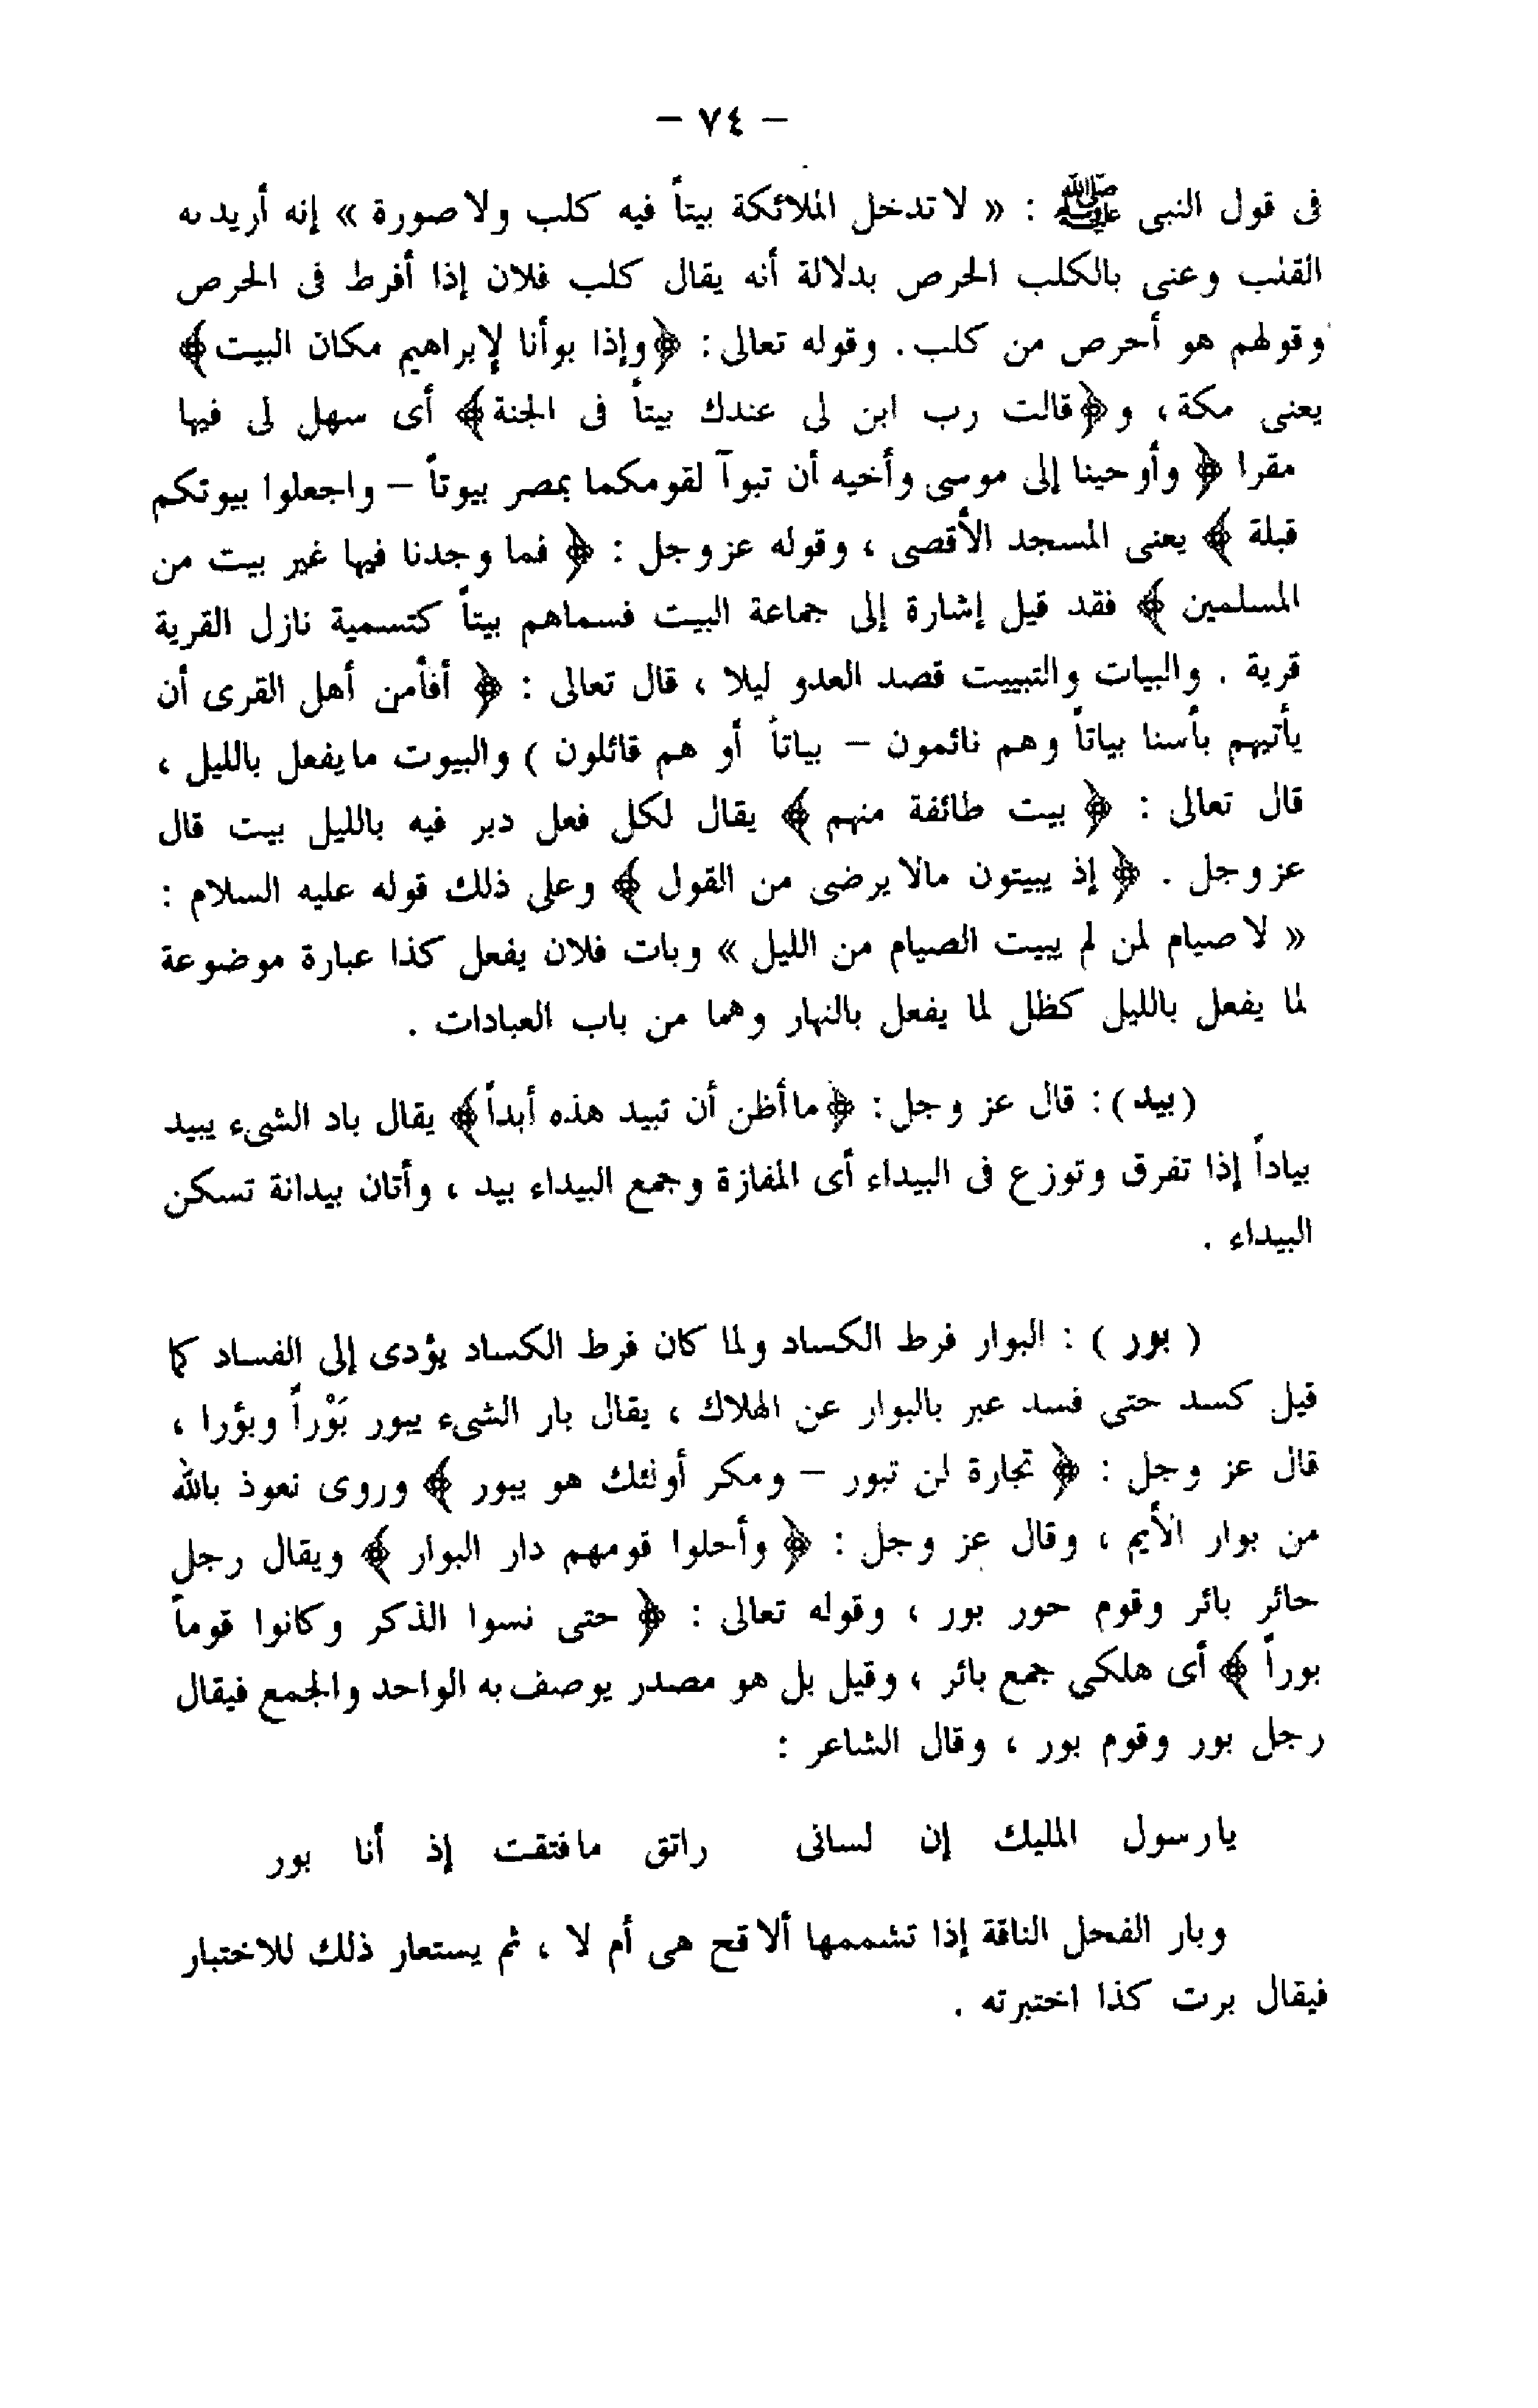 - ٧٤ -
فى قول النبى ﷺ : « لا تدخل الملائكة بيتاً فيه كلب ولا صورة » إنه أريد به
القلب وعنى بالكلب الحرص بدلالة أنه يقال كلب فلان إذا أفرط فى الحرص
وقولهم هو أحرص من كلب . وقوله تعالى : ﴿وإذا بوأنا لإبراهيم مكان البيت﴾
يعنى مكة ، و﴿قالت رب ابن لى عندك بيتاً فى الجنة﴾ أى سهل لى فيها
مقرا ﴿ وأوحينا إلى موسى وأخيه أن تبوآ لقومكما بمصر بيوتاً - واجعلوا بيوتكم
قبلة ﴾ يعنى المسجد الأقصى ، وقوله عز وجل : ﴿ فما وجدنا فيها غير بيت من
المسلمين ﴾ فقد قيل إشارة إلى جماعة البيت فسماهم بيتاً كتسمية نازل القرية
قرية . والبيات والتبييت قصد العدو ليلا ، قال تعالى : ﴿ أفأمن أهل القرى أن
يأتيهم بأسنا بياتاً وهم نائمون - بياتاً أو هم قائلون ) والبيوت ما يفعل بالليل ،
قال تعالى : ﴿ بيت طائفة منهم ﴾ يقال لكل فعل دبر فيه بالليل بيت قال
عز وجل . ﴿ إذ يبيتون مالا يرضى من القول ﴾ وعلى ذلك قوله عليه السلام :
« لا صيام لمن لم يبيت الصيام من الليل » وبات فلان يفعل كذا عبارة موضوعة
لما يفعل بالليل كظل لما يفعل بالنهار وهما من باب العبادات .
( بيد ) : قال عز وجل : ﴿ما أظن أن تبيد هذه أبداً﴾ يقال باد الشىء يبيد
بياداً إذا تفرق وتوزع فى البيداء أى المفازة وجمع البيداء بيد ، وأتان بيدانة تسكن
البيداء .
( بور ) : البوار فرط الكساد ولما كان فرط الكساد يؤدى إلى الفساد كما
قيل كسد حتى فسد عبر بالبوار عن الهلاك ، يقال بار الشىء يبور بَوْراً وبؤرا ،
قال عز وجل : ﴿ تجارة لن تبور - ومكر أولئك هو يبور ﴾ وروى نعوذ بالله
من بوار الأيم ، وقال عز وجل : ﴿ وأحلوا قومهم دار البوار ﴾ ويقال رجل
حائر بائر وقوم حور بور ، وقوله تعالى : ﴿ حتى نسوا الذكر وكانوا قوماً
بوراً ﴾ أى هلكى جمع بائر ، وقيل بل هو مصدر يوصف به الواحد والجمع فيقال
رجل بور وقوم بور ، وقال الشاعر :
يا رسول المليك إن لسانى راتق ما فتقت إذ أنا بور
وبار الفحل الناقة إذا تشممها ألاقح هى أم لا ، ثم يستعار ذلك للاختبار
فيقال برت كذا اختبرته .